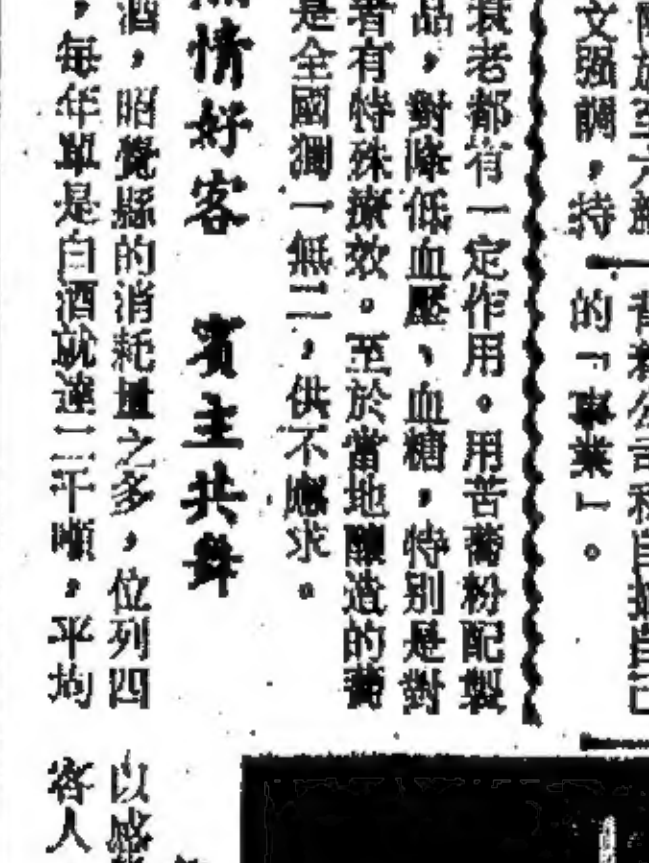 文强調，持
的「事業」。
衰老都有一定作用。用苦蕎粉配製
品，對降低血壓、血糖，特別是對
者有特殊療效。至於當地釀造的蕎
是全國獨一無二，供不應求。
情好客　賓主共舞
酒，昭覺縣的消耗量之多，位列四
，每年單是白酒就達二千噸，平均
以感
客人